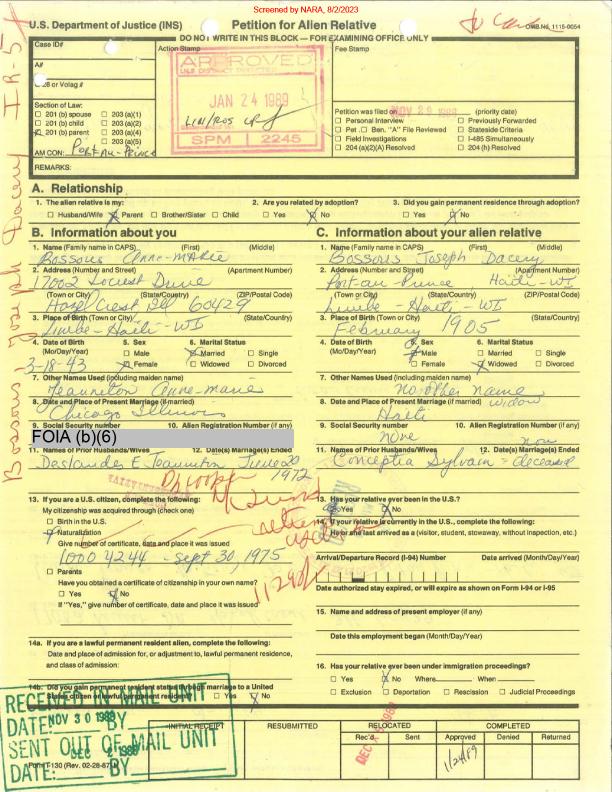 Screened by NARA, 8/2/2023
U.S. Department of Justice (INS) Petition for Alien Relative OMB No. 1115-0054
DO NOT WRITE IN THIS BLOCK — FOR EXAMINING OFFICE ONLY
Case ID# Action Stamp Fee Stamp
A#
G-28 or Volag #
APPROVED
JAN 24 1989
SPM 2245
Section of Law:
201 (b) spouse 203 (a)(1)
201 (b) child 203 (a)(2)
201 (b) parent 203 (a)(4)
203 (a)(5)
AM CON: Port-Au-Prince
Petition was filed on NOV 29 1988 (priority date)
Personal Interview Previously Forwarded
Pet. Ben. "A" File Reviewed Stateside Criteria
Field Investigations I-485 Simultaneously
204 (a)(2)(A) Resolved 204 (h) Resolved
REMARKS:
IR-5
Bossous Joseph Dacey
A. Relationship
1. The alien relative is my: 2. Are you related by adoption? 3. Did you gain permanent residence through adoption?
Husband/Wife Parent Brother/Sister Child Yes No Yes No
B. Information about you
1. Name (Family name in CAPS) (First) (Middle)
Bossous Anne-Marie
2. Address (Number and Street) (Apartment Number)
17002 Locust Drive
(Town or City) (State/Country) (ZIP/Postal Code)
Hazel Crest Ill 60429
3. Place of Birth (Town or City) (State/Country)
Limbe-Haiti-WI
4. Date of Birth 5. Sex 6. Marital Status
(Mo/Day/Year) Male Married Single
3-18-43 Female Widowed Divorced
7. Other Names Used (including maiden name)
Jeanniton Anne-marie
8. Date and Place of Present Marriage (if married)
Chicago Illinois
9. Social Security number 10. Alien Registration Number (if any)
FOIA (b)(6)
11. Names of Prior Husbands/Wives 12. Date(s) Marriage(s) Ended
Jeanniton June 20 1972
13. If you are a U.S. citizen, complete the following:
My citizenship was acquired through (check one)
Birth in the U.S.
Naturalization
Give number of certificate, date and place it was issued
1000 4244 - Sept 30, 1975
Parents
Have you obtained a certificate of citizenship in your own name?
Yes No
If "Yes," give number of certificate, date and place it was issued
14a. If you are a lawful permanent resident alien, complete the following:
Date and place of admission for, or adjustment to, lawful permanent residence,
and class of admission:
14b. Did you gain permanent resident status through marriage to a United
States citizen or lawful permanent resident? Yes No
C. Information about your alien relative
1. Name (Family name in CAPS) (First) (Middle)
Bossous Joseph Dacey
2. Address (Number and Street) (Apartment Number)
Port-au-Prince Haiti-WI
(Town or City) (State/Country) (ZIP/Postal Code)
Limbe-Haiti-WI
3. Place of Birth (Town or City) (State/Country)
February 1905
4. Date of Birth 5. Sex 6. Marital Status
(Mo/Day/Year) Male Married Single
Female Widowed Divorced
7. Other Names Used (including maiden name)
no other name
8. Date and Place of Present Marriage (if married) widow
Haiti
9. Social Security number 10. Alien Registration Number (if any)
none
11. Names of Prior Husbands/Wives 12. Date(s) Marriage(s) Ended
Conceptia Sylvain = deceased
13. Has your relative ever been in the U.S.?
Yes No
14. If your relative is currently in the U.S., complete the following:
He or she last arrived as a (visitor, student, stowaway, without inspection, etc.)
Arrival/Departure Record (I-94) Number Date arrived (Month/Day/Year)
Date authorized stay expired, or will expire as shown on Form I-94 or I-95
15. Name and address of present employer (if any)
Date this employment began (Month/Day/Year)
16. Has your relative ever been under immigration proceedings?
Yes No Where When
Exclusion Deportation Rescission Judicial Proceedings
RECEIVED IN MAIL UNIT
DATE: NOV 30 1988 BY
SENT OUT OF MAIL UNIT
DEC 6 1988
DATE: BY
INITIAL RECEIPT RESUBMITTED RELOCATED COMPLETED
Rec'd. Sent Approved Denied Returned
1/24/89
Form I-130 (Rev. 02-28-87)